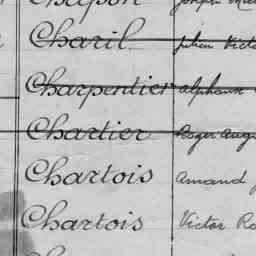 Chapon Joseph
Charil Julien Victo
Charpentier alphonse
Chartier Roger Augu
Chartois Amand
Chartois Victor Ro